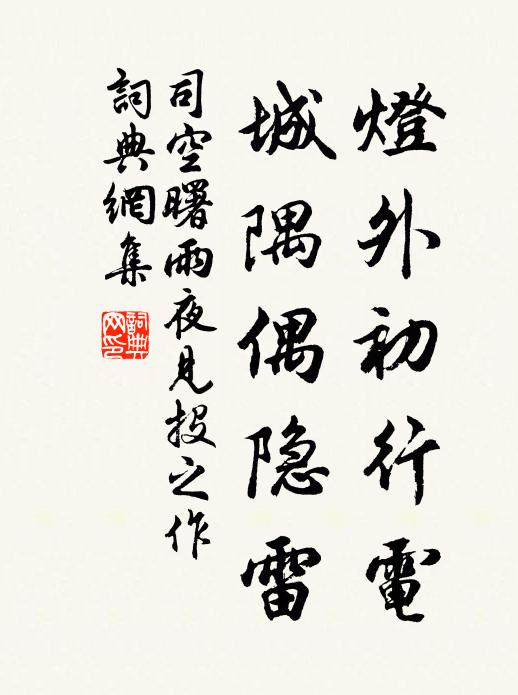 燈外初行電
城隅偶隐雷
司空曙雨夜見投之作
詞典網集
詞典網印